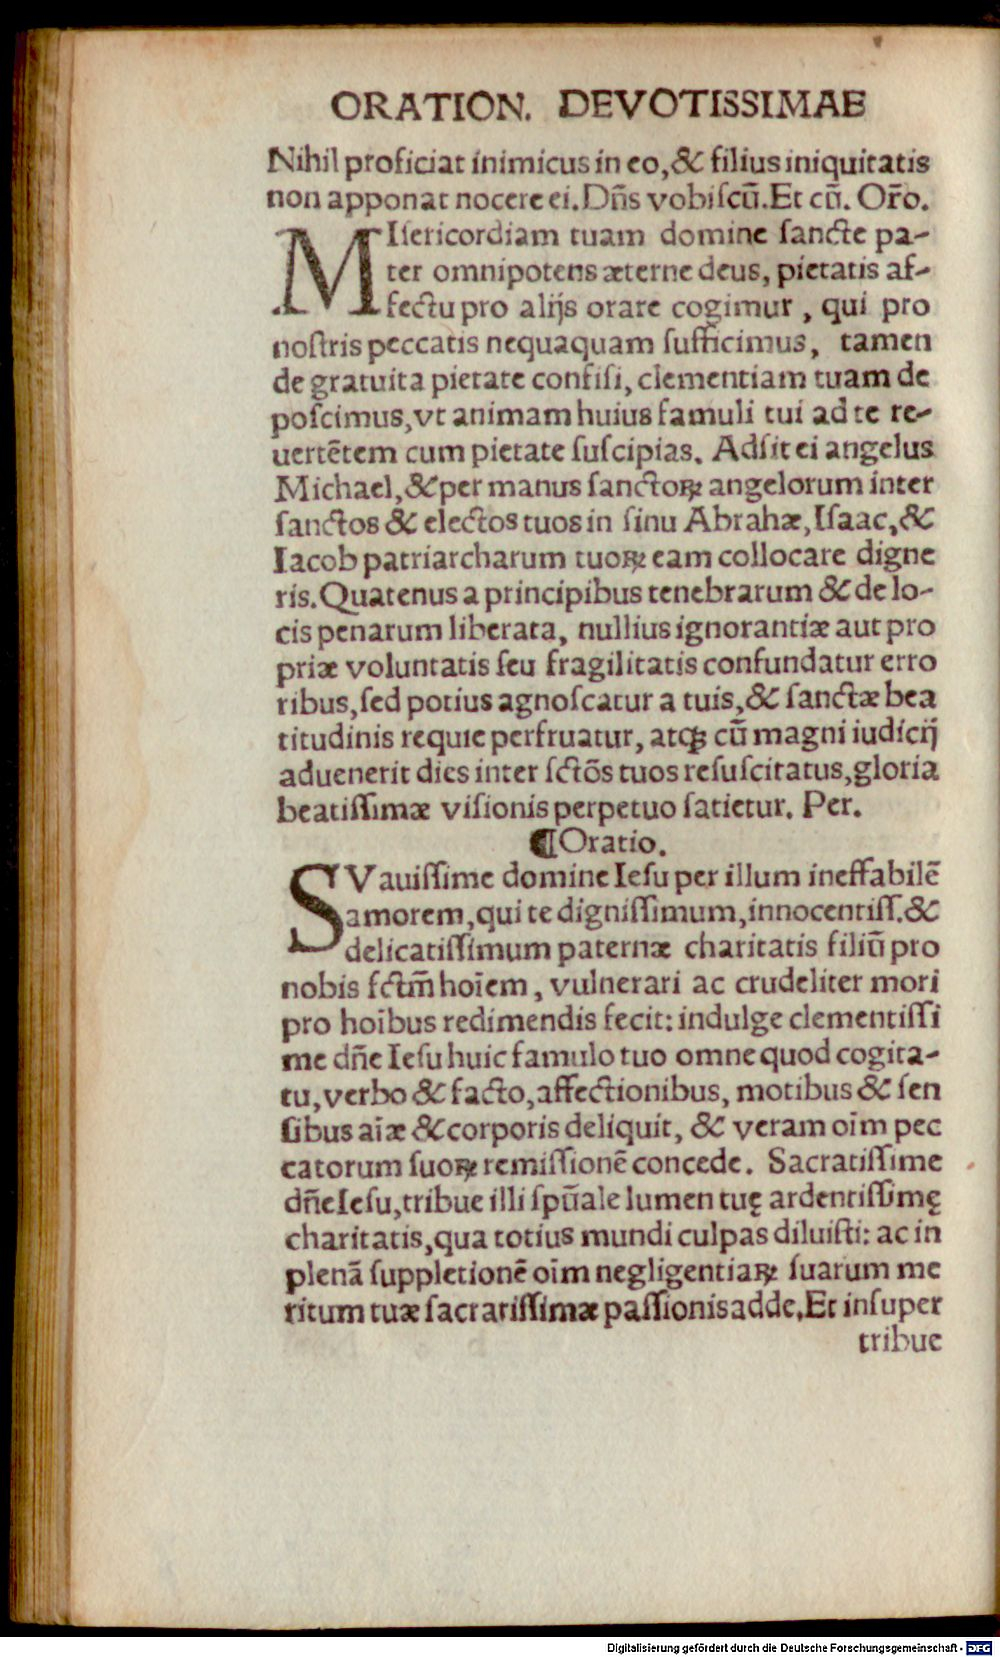 ORATION. DEVOTISSIMAE
Nihil proficiat inimicus in eo, & filius iniquitatis
non apponat nocere ei. Dñs vobiſcũ. Et cũ. Or̃o.
MIſericordiam tuam domine ſancte pa-
ter omnipotens æterne deus, pietatis af-
fectu pro alijs orare cogimur, qui pro
noſtris peccatis nequaquam ſufficimus, tamen
de gratuita pietate confiſi, clementiam tuam de
poſcimus, vt animam huius famuli tui ad te re-
uertẽtem cum pietate ſuſcipias. Adſit ei angelus
Michael, & per manus ſanctoꝝ angelorum inter
ſanctos & electos tuos in ſinu Abrahæ, Iſaac, &
Iacob patriarcharum tuoꝝ eam collocare digne
ris. Quatenus a principibus tenebrarum & de lo-
cis penarum liberata, nullius ignorantiæ aut pro
priæ voluntatis ſeu fragilitatis confundatur erro
ribus, ſed potius agnoſcatur a tuis, & ſanctæ bea
titudinis requie perfruatur, atqꝫ cũ magni iudicij
aduenerit dies inter ſctõs tuos reſuſcitatus, gloria
beatiſſimæ viſionis perpetuo ſatietur. Per.
¶Oratio.
SVauiſſime domine Ieſu per illum ineffabilẽ
amorem, qui te digniſſimum, innocentiſſ. &
delicatiſſimum paternæ charitatis filiũ pro
nobis fctm̃ hoīem, vulnerari ac crudeliter mori
pro hoībus redimendis fecit: indulge clementiſſi
me dñe Ieſu huic famulo tuo omne quod cogita-
tu, verbo & facto, affectionibus, motibus & ſen
ſibus aīæ & corporis deliquit, & veram oīm pec
catorum ſuoꝝ remiſſionẽ concede. Sacratiſſime
dñe Ieſu, tribue illi ſpũale lumen tuę ardentiſſimę
charitatis, qua totius mundi culpas diluiſti: ac in
plenã ſuppletionẽ oīm negligentiaꝝ ſuarum me
ritum tuæ ſacratiſſimæ paſſionis adde. Et inſuper
tribue
Digitalisierung gefördert durch die Deutsche Forschungsgemeinschaft - DFG